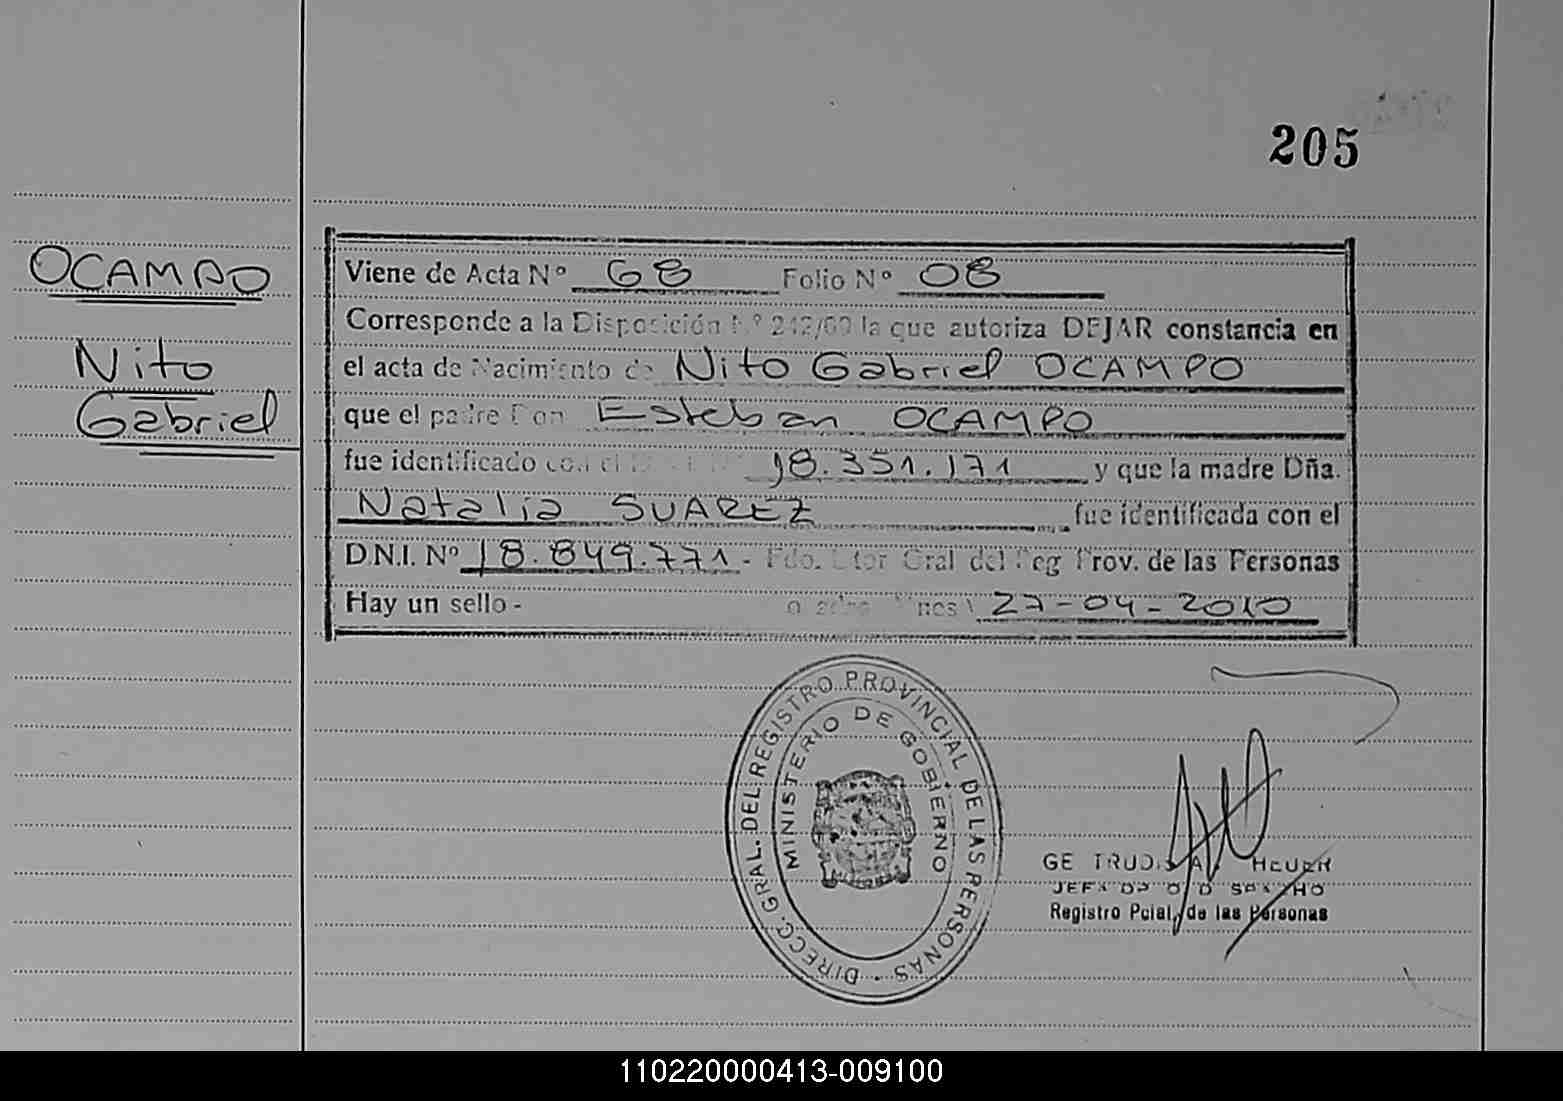 205
OCAMPO
Nito
Gabriel
Viene de Acta Nº 68 Folio Nº 08
Corresponde a la Disposición Nº 242/60 la que autoriza DEJAR constancia en
el acta de Nacimiento de Nito Gabriel OCAMPO
que el padre Don Esteban OCAMPO
fue identificado con el 18.351.171 y que la madre Dña.
Natalia SUAREZ fue identificada con el
D.N.I. Nº 18.849.771 - Fdo. Dtor Gral del Reg Prov. de las Personas
Hay un sello - 27-04-2010
DIRECC. GRAL. DEL REGISTRO PROVINCIAL DE LAS PERSONAS
MINISTERIO DE GOBIERNO
Registro Pcial. de las Personas
110220000413-009100